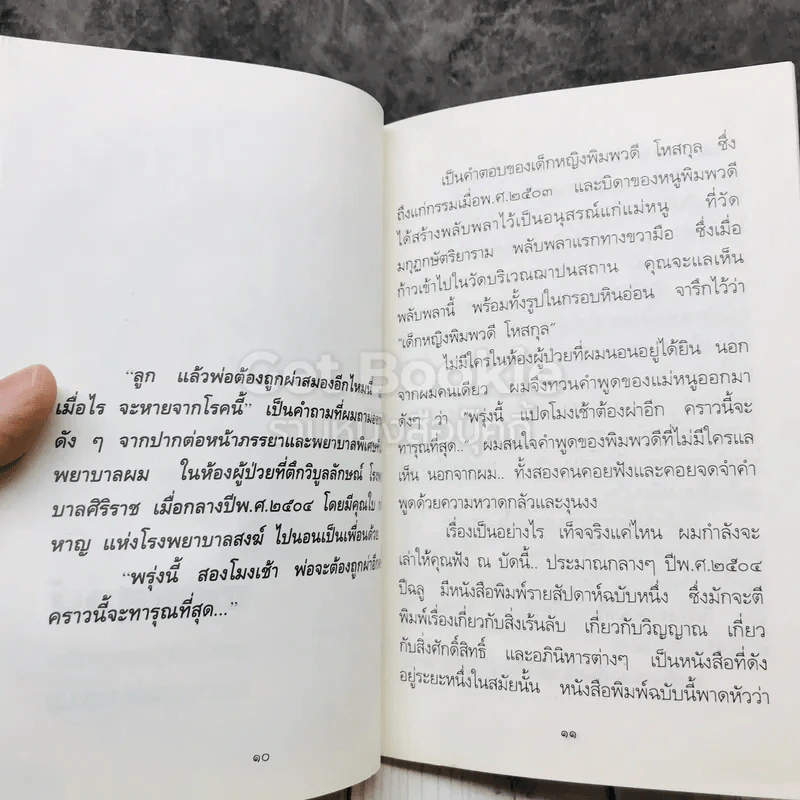 “ลูก แล้วพ่อต้องถูกผ่าสมองอีกไหมนี้
เมื่อไร จะหายจากโรคนี้” เป็นคำถามที่ผมถามออก
ดัง ๆ จากปากต่อหน้าภรรยาและพยาบาลพิเศษ
พยาบาลผม ในห้องผู้ป่วยที่ตึกวิบูลลักษณ์ โรงพ
บาลศิริราช เมื่อกลางปีพ.ศ.๒๕๐๔ โดยมีคุณใบ
หาญ แห่งโรงพยาบาลสงฆ์ ไปนอนเป็นเพื่อนด้วย
“พรุ่งนี้ สองโมงเช้า พ่อจะต้องถูกผ่าอีก
คราวนี้จะทารุณที่สุด...”
๑๐
เป็นคำตอบของเด็กหญิงพิมพวดี โหสกุล ซึ่ง
ถึงแก่กรรมเมื่อพ.ศ.๒๕๐๓ และบิดาของหนูพิมพวดี
ได้สร้างพลับพลาไว้เป็นอนุสรณ์แก่แม่หนู ที่วัด
มกุฏกษัตริยาราม พลับพลาแรกทางขวามือ ซึ่งเมื่อ
ก้าวเข้าไปในวัดบริเวณฌาปนสถาน คุณจะแลเห็น
พลับพลานี้ พร้อมทั้งรูปในกรอบหินอ่อน จารึกไว้ว่า
“เด็กหญิงพิมพวดี โหสกุล”
ไม่มีใครในห้องผู้ป่วยที่ผมนอนอยู่ได้ยิน นอก
จากผมคนเดียว ผมจึงทวนคำพูดของแม่หนูออกมา
ดังๆ ว่า “พรุ่งนี้ แปดโมงเช้าต้องผ่าอีก คราวนี้จะ
ทารุณที่สุด..” ผมสนใจคำพูดของพิมพวดีที่ไม่มีใครแล
เห็น นอกจากผม.. ทั้งสองคนคอยฟังและคอยจดจำคำ
พูดด้วยความหวาดกลัวและงุนงง
เรื่องเป็นอย่างไร เท็จจริงแค่ไหน ผมกำลังจะ
เล่าให้คุณฟัง ณ บัดนี้.. ประมาณกลางๆ ปีพ.ศ.๒๕๐๔
ปีฉลู มีหนังสือพิมพ์รายสัปดาห์ฉบับหนึ่ง ซึ่งมักจะตี
พิมพ์เรื่องเกี่ยวกับสิ่งเร้นลับ เกี่ยวกับวิญญาณ เกี่ยว
กับสิ่งศักดิ์สิทธิ์ และอภินิหารต่างๆ เป็นหนังสือที่ดัง
อยู่ระยะหนึ่งในสมัยนั้น หนังสือพิมพ์ฉบับนี้พาดหัวว่า
๑๑
Get Bookie